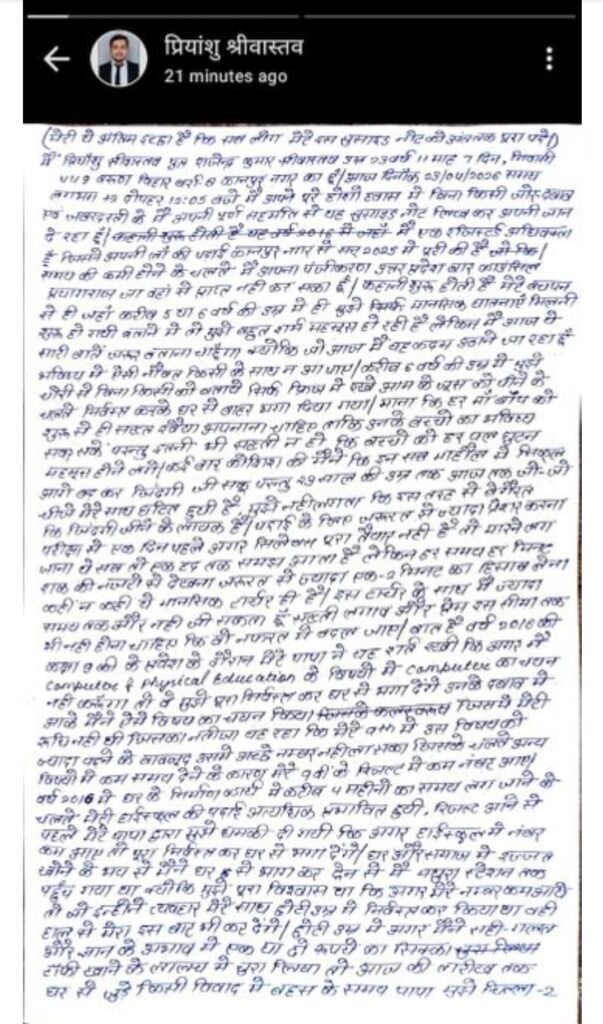 प्रियांशु श्रीवास्तव
21 minutes ago
(मेरी ये अंतिम इच्छा है कि सब लोग मेरे इस सुसाइड नोट को अंत तक पूरा पढ़ें)
मैं प्रियांशु श्रीवास्तव पुत्र राजेन्द्र कुमार श्रीवास्तव उम्र 23 वर्ष 11 माह 7 दिन, निवासी
वरूण विहार बर्रा 8 कानपुर नगर का हूँ/ आज दिनाँक 23/04/2026 समय
लगभग दोपहर 12:05 बजे मैं अपने पूरे होशो हवास में बिना किसी जोर-दबाव
एवं जबरदस्ती के मैं अपनी पूर्ण सहमति से यह सुसाइड नोट लिख कर अपनी जान
दे रहा हूँ/ कहानी शुरू होती है यह वर्ष 2016 से जहाँ मैं एक रजिस्टर्ड अधिवक्ता
हूँ जिसने अपनी लॉ की पढ़ाई कानपुर नगर से सन् 2025 में पूरी की है जो कि/
समय की कमी होने के चलते मैं अपना पंजीकरण उत्तर प्रदेश बार काउंसिल
प्रयागराज जा वहाँ से प्राप्त नहीं कर सका हूँ/ कहानी शुरू होती है मेरे बचपन
से ही जहाँ करीब 5 या 6 वर्ष की उम्र में ही मुझे सिर्फ मानसिक यातनाएँ मिलनी
शुरू हो गयी बताने में तो मुझे बहुत शर्म महसूस हो रही है लेकिन मैं आज ये
सारी बातें जरूर बताना चाहूँगा क्योंकि जो आज मैं यह कदम उठाने जा रहा हूँ
भविष्य में ऐसी नौबत किसी के साथ न आ जाए/ करीब 6 वर्ष की उम्र में मुझे
चोरी से बिना किसी को बताये सिर्फ फ्रिज में रखे आम के जूस को पीने के
चलते निर्वस्त्र करके घर से बाहर भगा दिया गया/ माना कि हर माँ बाप को
शुरू से ही सख्त रवैया अपनाना चाहिए ताकि उनके बच्चो का भविष्य
सके परन्तु इतनी भी सख्ती न हो कि बच्चो को हर पल घुटन
महसूस होने लगे/ कई बार कोशिश की मैंने कि इस सब माहौल से निकल
आगे बढ़ कर जिंदगी जी सकू परन्तु साल की उम्र तक आज तक जो-जो
चीजें मेरे साथ घटित हुयी है, मुझे नहीं लगता कि इस तरह से
कि जिंदगी जीने के लायक है/ पढ़ाई के लिए जरूरत से ज्यादा प्रेशर करना
परीक्षा में एक दिन पहले अगर सिलेबस पूरा तैयार नहीं है तो मारने लग
जाना ये सब तो एक हद तक समझ आता है लेकिन हर समय हर मिनट
शक की नजरों से देखना जरूरत से ज्यादा एक-2 मिनट का हिसाब लेना
कहीं न कहीं ये मानसिक टार्चर ही है/ इस टार्चर के साथ मैं ज्यादा
समय तक और नहीं जी सकता हूँ सख्ती लगाव और प्रेम इस सीमा तक
भी नहीं होना चाहिए कि वो नफरत में बदल जाए/ बात है वर्ष 2016 की
कक्षा 9 वीं के प्रवेश के दौरान मेरे पापा ने यह शर्त रखी कि अगर मैं
Computer & Physical Education के विषयों में Computer का चयन
नहीं करूँगा तो वे मुझे पूरा निर्वस्त्र कर घर से भगा देंगे उनके दबाव में
आके मैंने ऐसे विषय का चयन किया/ जिसके फलस्वरूप जिसमे मेरी
रूचि नहीं थी जिसका नतीजा यह रहा कि मेरे 9th में उस विषय को
ज्यादा पढ़ने के बावजूद उसमें अच्छे नम्बर नहीं ला सका जिसके चलते अन्य
विषयो में कम समय देने के कारण मेरे 9 वीं के रिजल्ट में कम नंबर आए/
वर्ष 2016 में घर के निर्माण कार्य में करीब 4 महीनों का समय लग जाने के
चलते मेरी हाईस्कूल की पढ़ाई अत्यधिक प्रभावित हुयी, रिजल्ट आने से
पहले मेरे पापा द्वारा मुझे धमकी दी गयी कि अगर हाईस्कूल में नंबर
कम आए तो पूरा निर्वस्त्र कर घर से भगा देंगे/ घर और समाज में इज्जत
खोने के भय से मैंने घर से भाग कर ट्रेन से मैं मथुरा स्टेशन तक
पहुँच गया था क्योंकि मुझे पूरा विश्वास था कि अगर मेरे नम्बर कम आये
तो जो इन्होंने व्यवहार मेरे साथ छोटी उम्र में निर्वस्त्र कर किया था वही
हाल से मेरा इस बार भी कर देंगे/ छोटी उम्र में अगर मैंने सही-गलत
और ज्ञान के अभाव में एक या दो रूपये का सिक्का
टॉफी खाने के लालच में चुरा लिया तो आज की तारीख तक
घर से जुड़े किसी विवाद में बहस के समय पापा मुझे चिल्ला-2